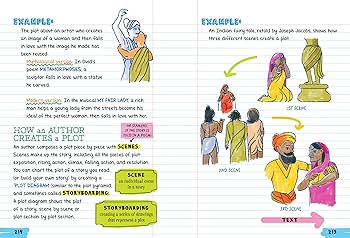 EXAMPLE:
The plot about an artist who creates
an image of a woman and then falls
in love with the image he has made
has been reused:
Mythological version: In Ovid's
poem METAMORPHOSES, a
sculptor falls in love with a statue
he carved.
Modern version: In the musical MY FAIR LADY, a rich
man helps a young lady from the streets become his
ideal of the perfect woman, then falls in love with her.
HOW an AUTHOR
CREATES a PLOT
An author composes a plot piece by piece with SCENES.
Scenes make up the story, including all the pieces of plot:
exposition, rising action, climax, falling action, and resolution.
You can chart the plot of a story you read
(or build your own story) by creating a
PLOT DIAGRAM (similar to the plot pyramid,
and sometimes called STORYBOARDING.
A plot diagram shows the plot
of a story, scene by scene or
plot section by plot section.
SCENE
an individual event
in a story
STORYBOARDING
creating a series of drawings
that represent a plot
214
EXAMPLE:
An Indian fairy tale, retold by Joseph Jacobs, shows how
three different scenes create a plot.
1ST SCENE
2ND SCENE
3RD SCENE
TEXT
215